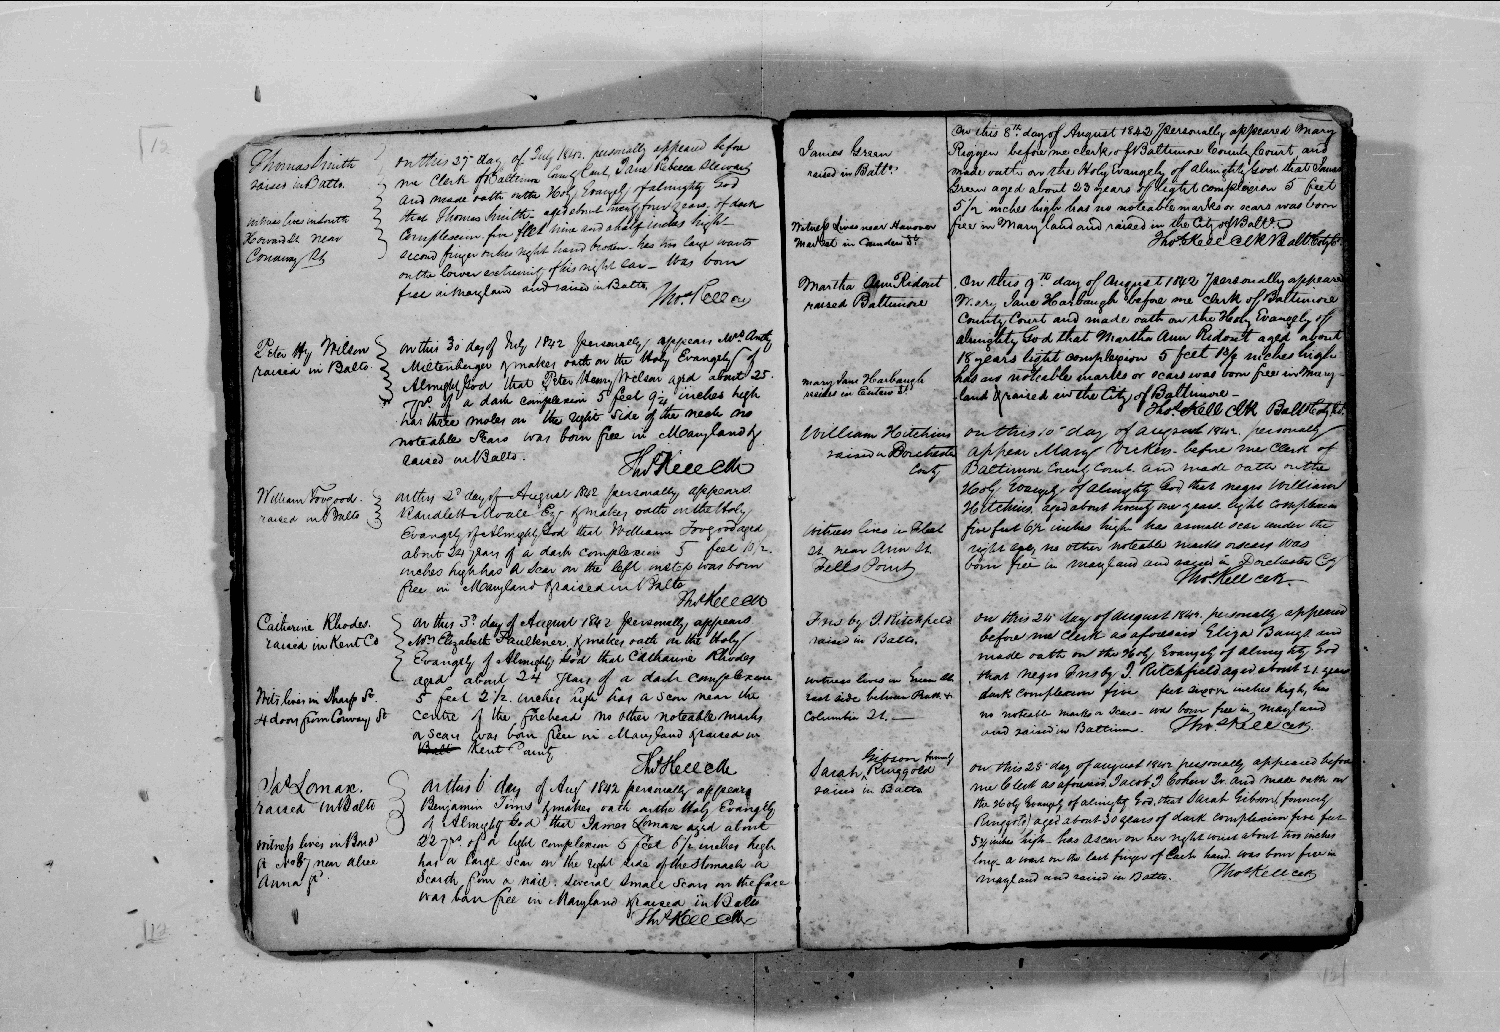 Thomas Smith
raised in Balto.
witness lives in South
Howard St. near
Conway St
on this 27 day of July 1842. personally appeared before
me Clerk of Baltimore County Court, Jane Rebecca Stewart
and made oath on the Holy Evangely of almighty God
that Thomas Smith aged about twenty four years, of dark
Complexion five feet nine and a half inches high
second finger on his right hand broken. has two large warts
on the lower extremity of his right ear – Was born
free in Maryland and raised in Balto.
Thos Kell
Peter Hy Wilson
raised in Balto.
on this 30 day of July 1842 personally appears Mrs Anty
Miltenberger & makes oath on the Holy Evangely of
Almighty God that Peter Henry Wilson aged about 25
yrs. of a dark complexion 5 feet 9¼ inches high
has three moles on the right side of the neck no
noteable Scars was born free in Maryland &
raised in Balto.
Thos Kell Clk
William Toogood.
raised in Balto
on this 2d day of August 1842 personally appears
Esq & makes oath on the Holy
Evangely of Almighty God that William Toogood aged
about years of a dark complexion 5 feet
inches high has a Scar on the left was born
free in Maryland & raised in Balto
Thos Kell Clk
Catharine Rhodes.
raised in Kent Co
Wits lives in Sharp St.
4 doors from Conway St
on this 3d day of August 1842 personally appears
Mrs Elizabeth Faulkner, & makes oath on the Holy
Evangely of Almighty God that Catharine Rhodes
aged about 24 years of a dark complexion
5 feet 2½ inches high has a Scar near the
centre of the forehead no other noteable marks
or scars was born free in Maryland & raised in
Balt Kent County
Thos Kell Clk
Jas Lomax.
raised in Balto
witness lives in Bond
St No 67 near alice
Anna St.
on this 6 day of Aug 1842 personally appears
Benjamin & makes oath on the Holy Evangely
of Almighty God that James Lomax aged about
22 yrs. of a light complexion 5 feet 6½ inches high
has a large scar on the right side of the Stomach a
Scratch from a nail. Several Small Scars on the face
was born free in Maryland & raised in Balto
Thos Kell Clk
James Green
raised in Balto.
Witness Lives near Hanover
Market in Camden St.
On this 8th day of August 1842 personally appeared Mary
Riggen before me clerk of Baltimore County Court and
made oath on the Holy Evangely of Almighty God that James
Green aged about 23 years of light complexion 5 feet
5½ inches high has no noteable marks or scars was born
free in Maryland and raised in the City of Balto.
Thos Kell Clk Balt Coty Ct
Martha Ann Ridout
raised Baltimore
mary Jane Harbaugh
resides in Eutaw St.
On this 9th day of August 1842 personally appeared
Mary Jane Harbaugh before me clerk of Baltimore
County Court and made oath on the Holy Evangely of
almighty God that Martha Ann Ridout aged about
18 years light complexion 5 feet inches high
has no noteable marks or scars was born free in Mary-
land & raised in the City of Baltimore –
Thos Kell Clk Balt Coty Ct
William Hitchins
raised in Dorchester
County
Witness lives in Fleet
St. near Ann St.
Fells Point
on this 10 day of august 1842. personally
appear Mary Vickers. before me Clerk of
Baltimore County Court and made oath on the
Holy Evangely of almighty God that negro William
Hitchins, aged about twenty one years light complexion
five feet 6½ inches high has a small scar under the
right eye, no other noteable marks or scars was
born free in maryland and raised in Dorchester Cy
Thos Kell Clk
by J. Ritchfield
raised in Balto.
witness lives in Green St.
east side between Balt. &
Columbia St. –
on this 24 day of august 1842. personally appeared
before me Clerk as aforesaid Eliza and
made oath on the Holy Evangely of almighty God
that negro J. Ritchfield aged about 21 years
dark complexion five feet inches high, has
no noteable marks or scars – was born free in maryland
and raised in Baltimore.
Thos Kell Clk
Sarah Gibson formerly
Ringgold
raised in Balto
on this 25 day of august 1842 personally appeared before
me Clerk as aforesaid, Jacob J Cohen Jr. and made oath on
the Holy Evangely of almighty God, that Sarah Gibson (formerly
Ringgold) aged about 30 years of dark complexion five feet
inches high – has a scar on her right wrist about two inches
long – a wart on the last finger of Each hand. was born free in
maryland and raised in Balto.
Thos Kell Clk